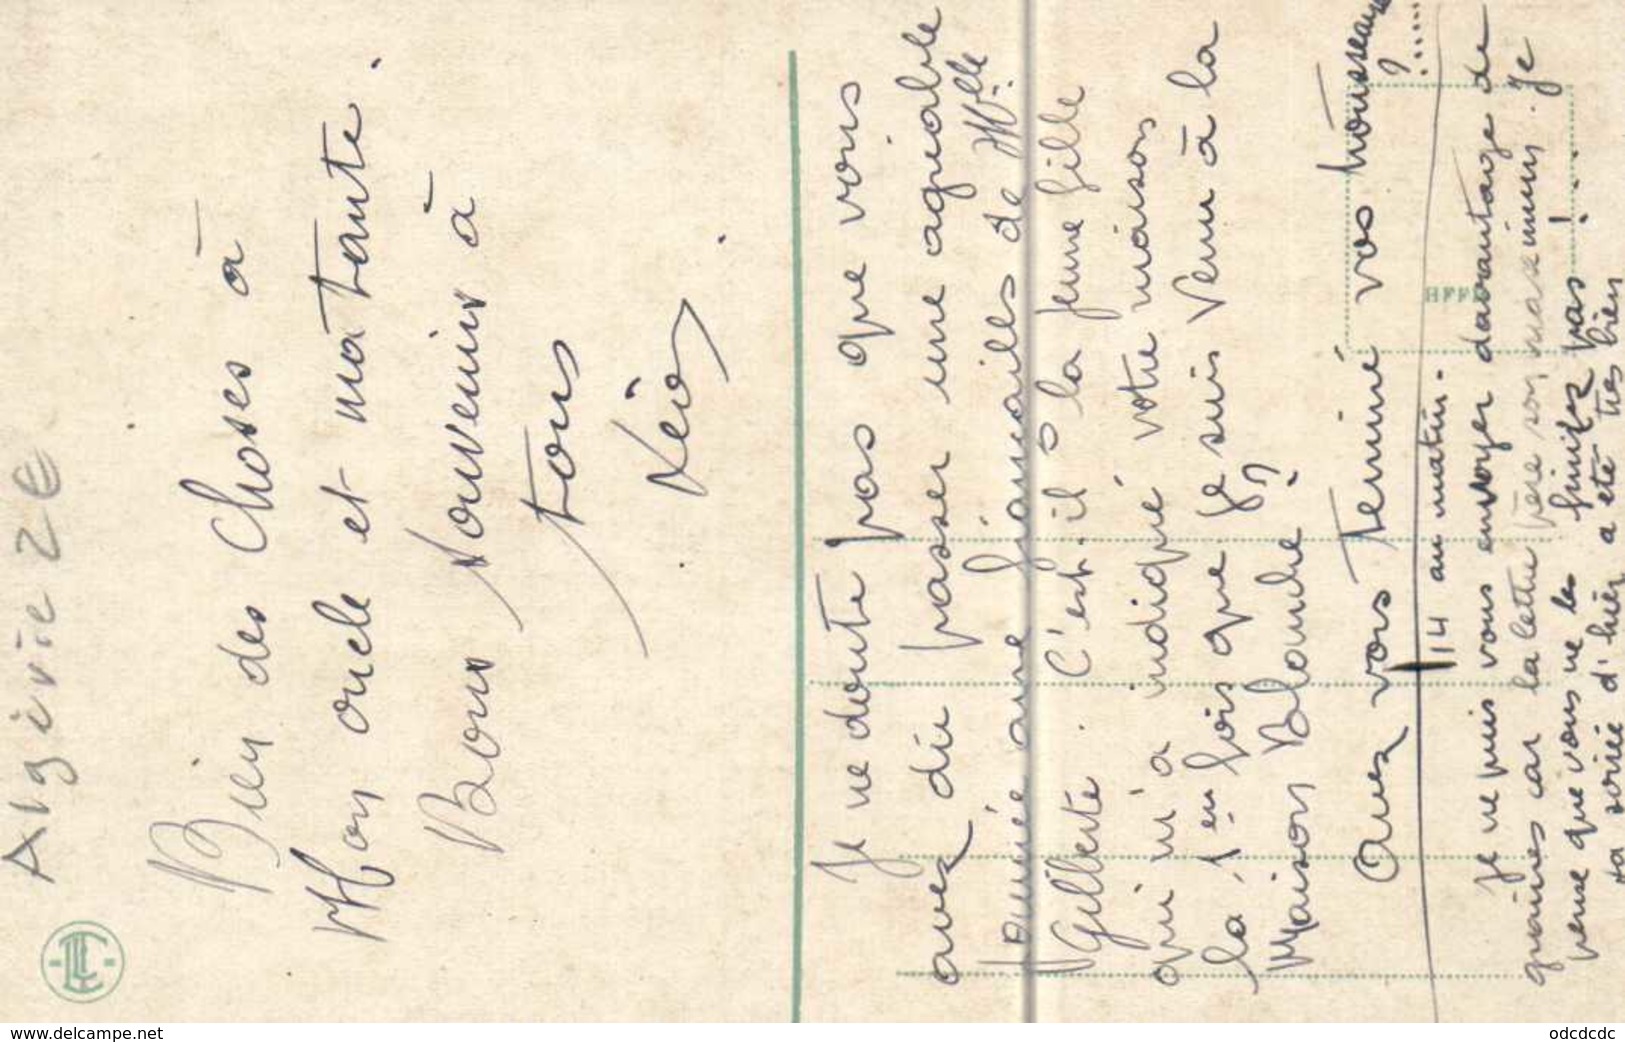 Algérie 2€
Bien des choses à
Mon oncle et ma tante.
Bons souvenirs à
tous
Léo
Je ne doute pas que vous
avez dû passer une agréable
journée aux fiançailles de Melle
Gilberte. C'est-il la jeune fille
qui m'a indiqué votre maison
la 1ere fois que je suis venu à la
Maison Blanche ?
Avez vous terminé vos housseaux
? .....
14 au matin.
Je ne puis vous envoyer davantage de
graines car la lettre pèse son maximum. Je
pense que vous ne les finirez pas ! . .
ta soirée d'hier a été très bien
www.delcampe.net
odcdcdc